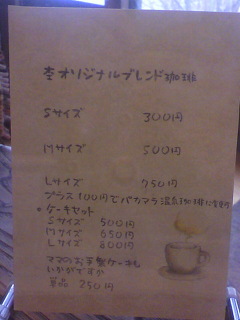 杢オリジナルブレンド珈琲
Sサイズ 300円
Mサイズ 500円
Lサイズ 750円
プラス100円でパカマラ温泉珈琲に変更可
*ケーキセット
Sサイズ 500円
Mサイズ 650円
Lサイズ 800円
ママのお手製ケーキも
いかがですか
単品 250円